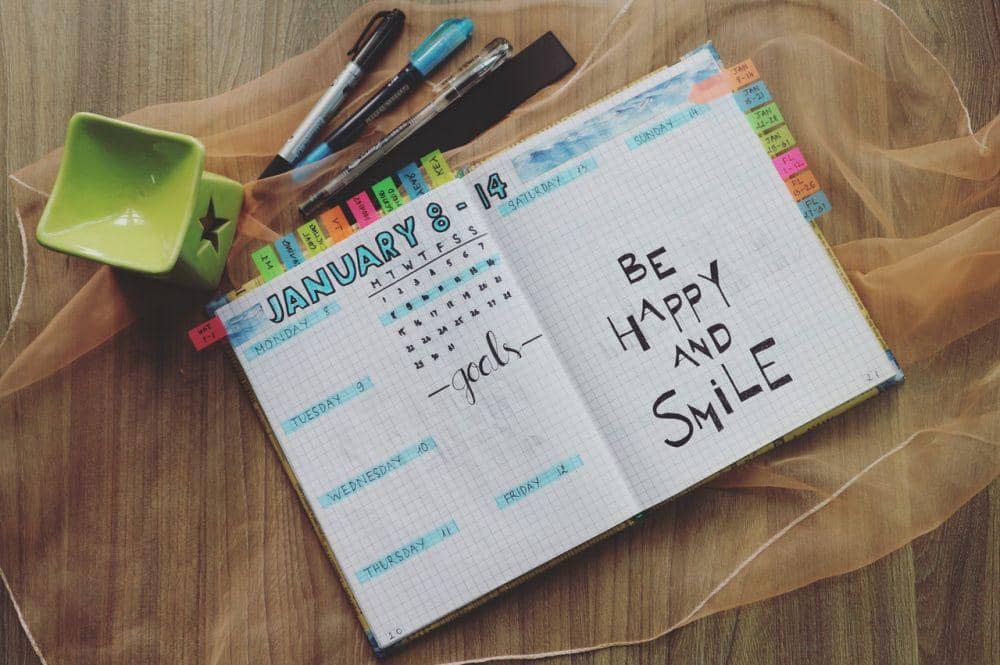 KEY
JANUARY 8-14
M T W T F S S
1 2 3 4 5 6 7
8 9 10 11 12 13 14
15 16 17 18 19 20 21
22 23 24 25 26 27 28
29 30 31
-goals-
MONDAY 8
TUESDAY 9
WEDNESDAY 10
THURSDAY 11
FRIDAY 12
20
SATURDAY 13
SUNDAY 14
BE
HAPPY
AND
SMiLE
21
JAN
8-14
JAN
15-21
JAN
22-28
JAN
29-31
FL
1-12
FL
13-26
FL
27-31